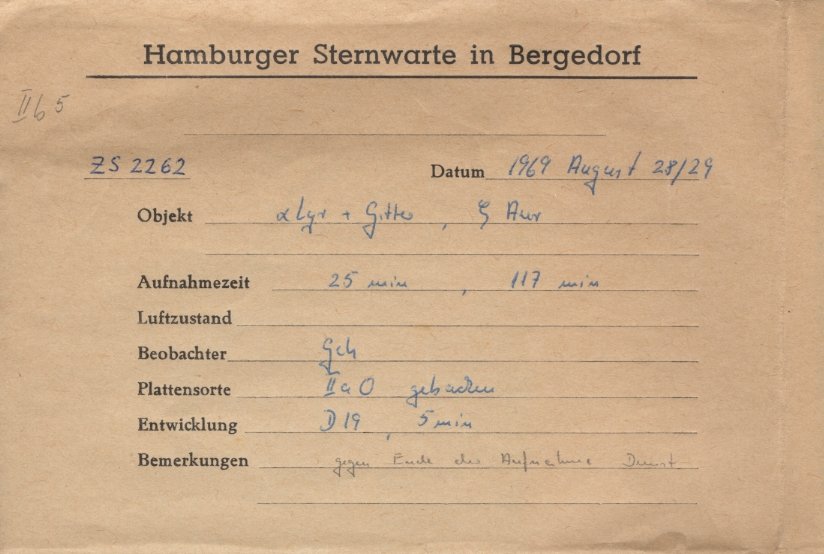 Hamburger Sternwarte in Bergedorf
II b 5
ZS 2262 Datum 1969 August 28/29
Objekt α Lyr + Gitter, ζ Aur
Aufnahmezeit 25 min, 117 min
Luftzustand
Beobachter Gch
Plattensorte IIaO gebacken
Entwicklung D19, 5 min
Bemerkungen gegen Ende der Aufnahme Dunst